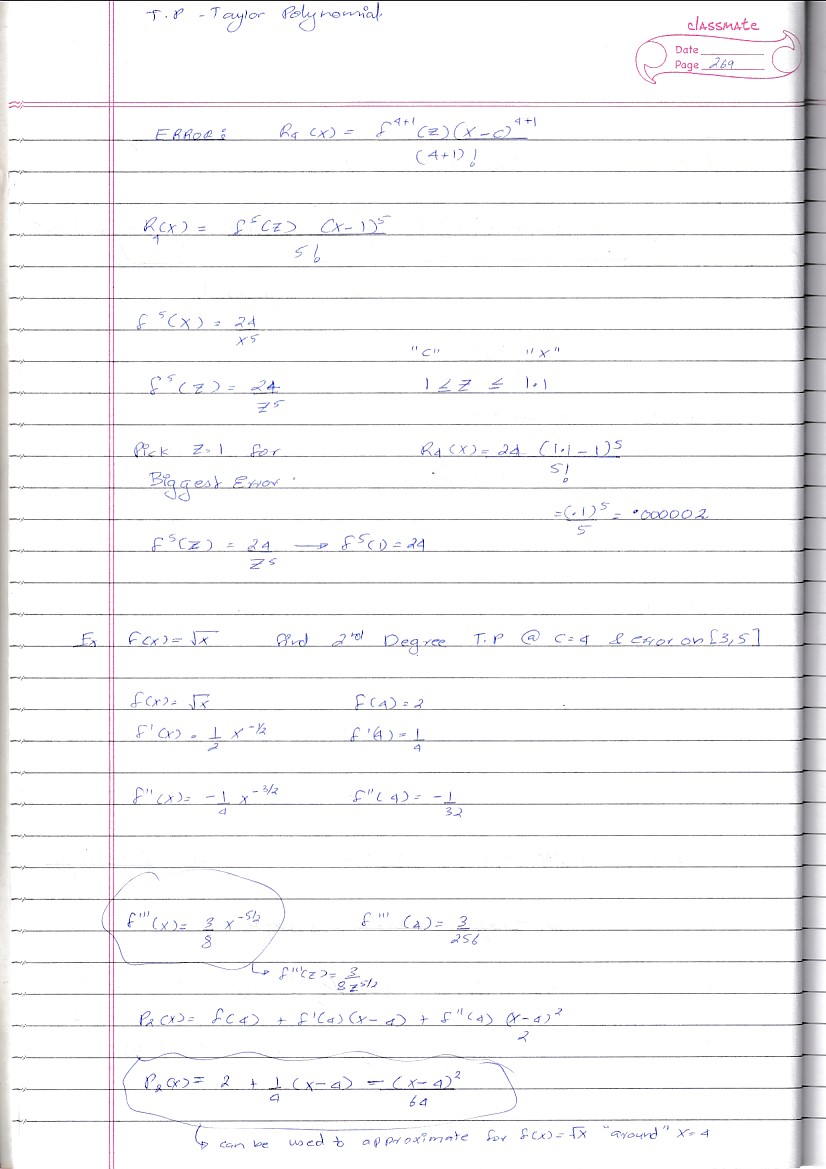 T.P - Taylor Polynomial
classmate
Date
Page 269
ERROR: R₄(x) = f⁴⁺¹(z)(x-c)⁴⁺¹ / (4+1)!
R₄(x) = f⁵(z) (x-1)⁵ / 5!
f⁵(x) = 24 / x⁵
"c" "x"
f⁵(z) = 24 / z⁵ 1 ≤ z ≤ 1.1
Pick z=1 for R₄(x) = 24 (1.1-1)⁵ / 5!
Biggest Error.
= (.1)⁵ / 5 = .000002
f⁵(z) = 24 / z⁵ → f⁵(1) = 24
Ex f(x) = √x find 2nd Degree T.P @ c=4 & error on [3,5]
f(x) = √x f(4) = 2
f'(x) = 1/2 x^-1/2 f'(4) = 1/4
f''(x) = -1/4 x^-3/2 f''(4) = -1/32
f'''(x) = 3/8 x^-5/2 f'''(4) = 3/256
↳ f'''(z) = 3 / 8z^5/2
P₂(x) = f(4) + f'(4)(x-4) + f''(4) (x-4)² / 2
P₂(x) = 2 + 1/4 (x-4) - (x-4)² / 64
↳ can be used to approximate for f(x)=√x "around" x=4